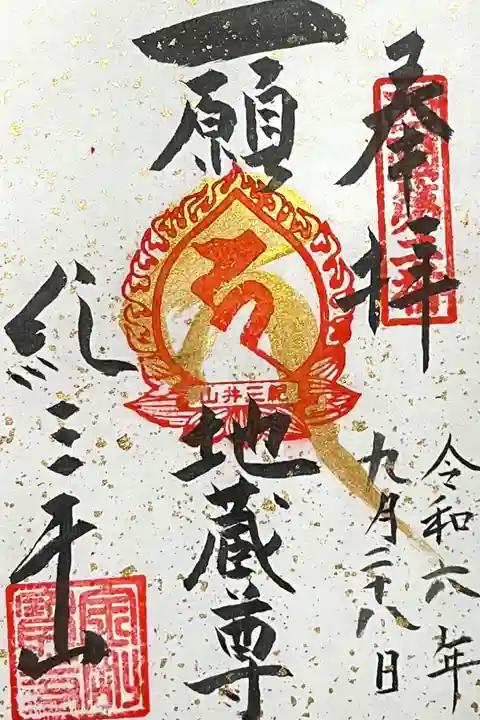 奉拝
令和六年
九月二十八日
一願
地蔵尊
紀三井山
紀三井山